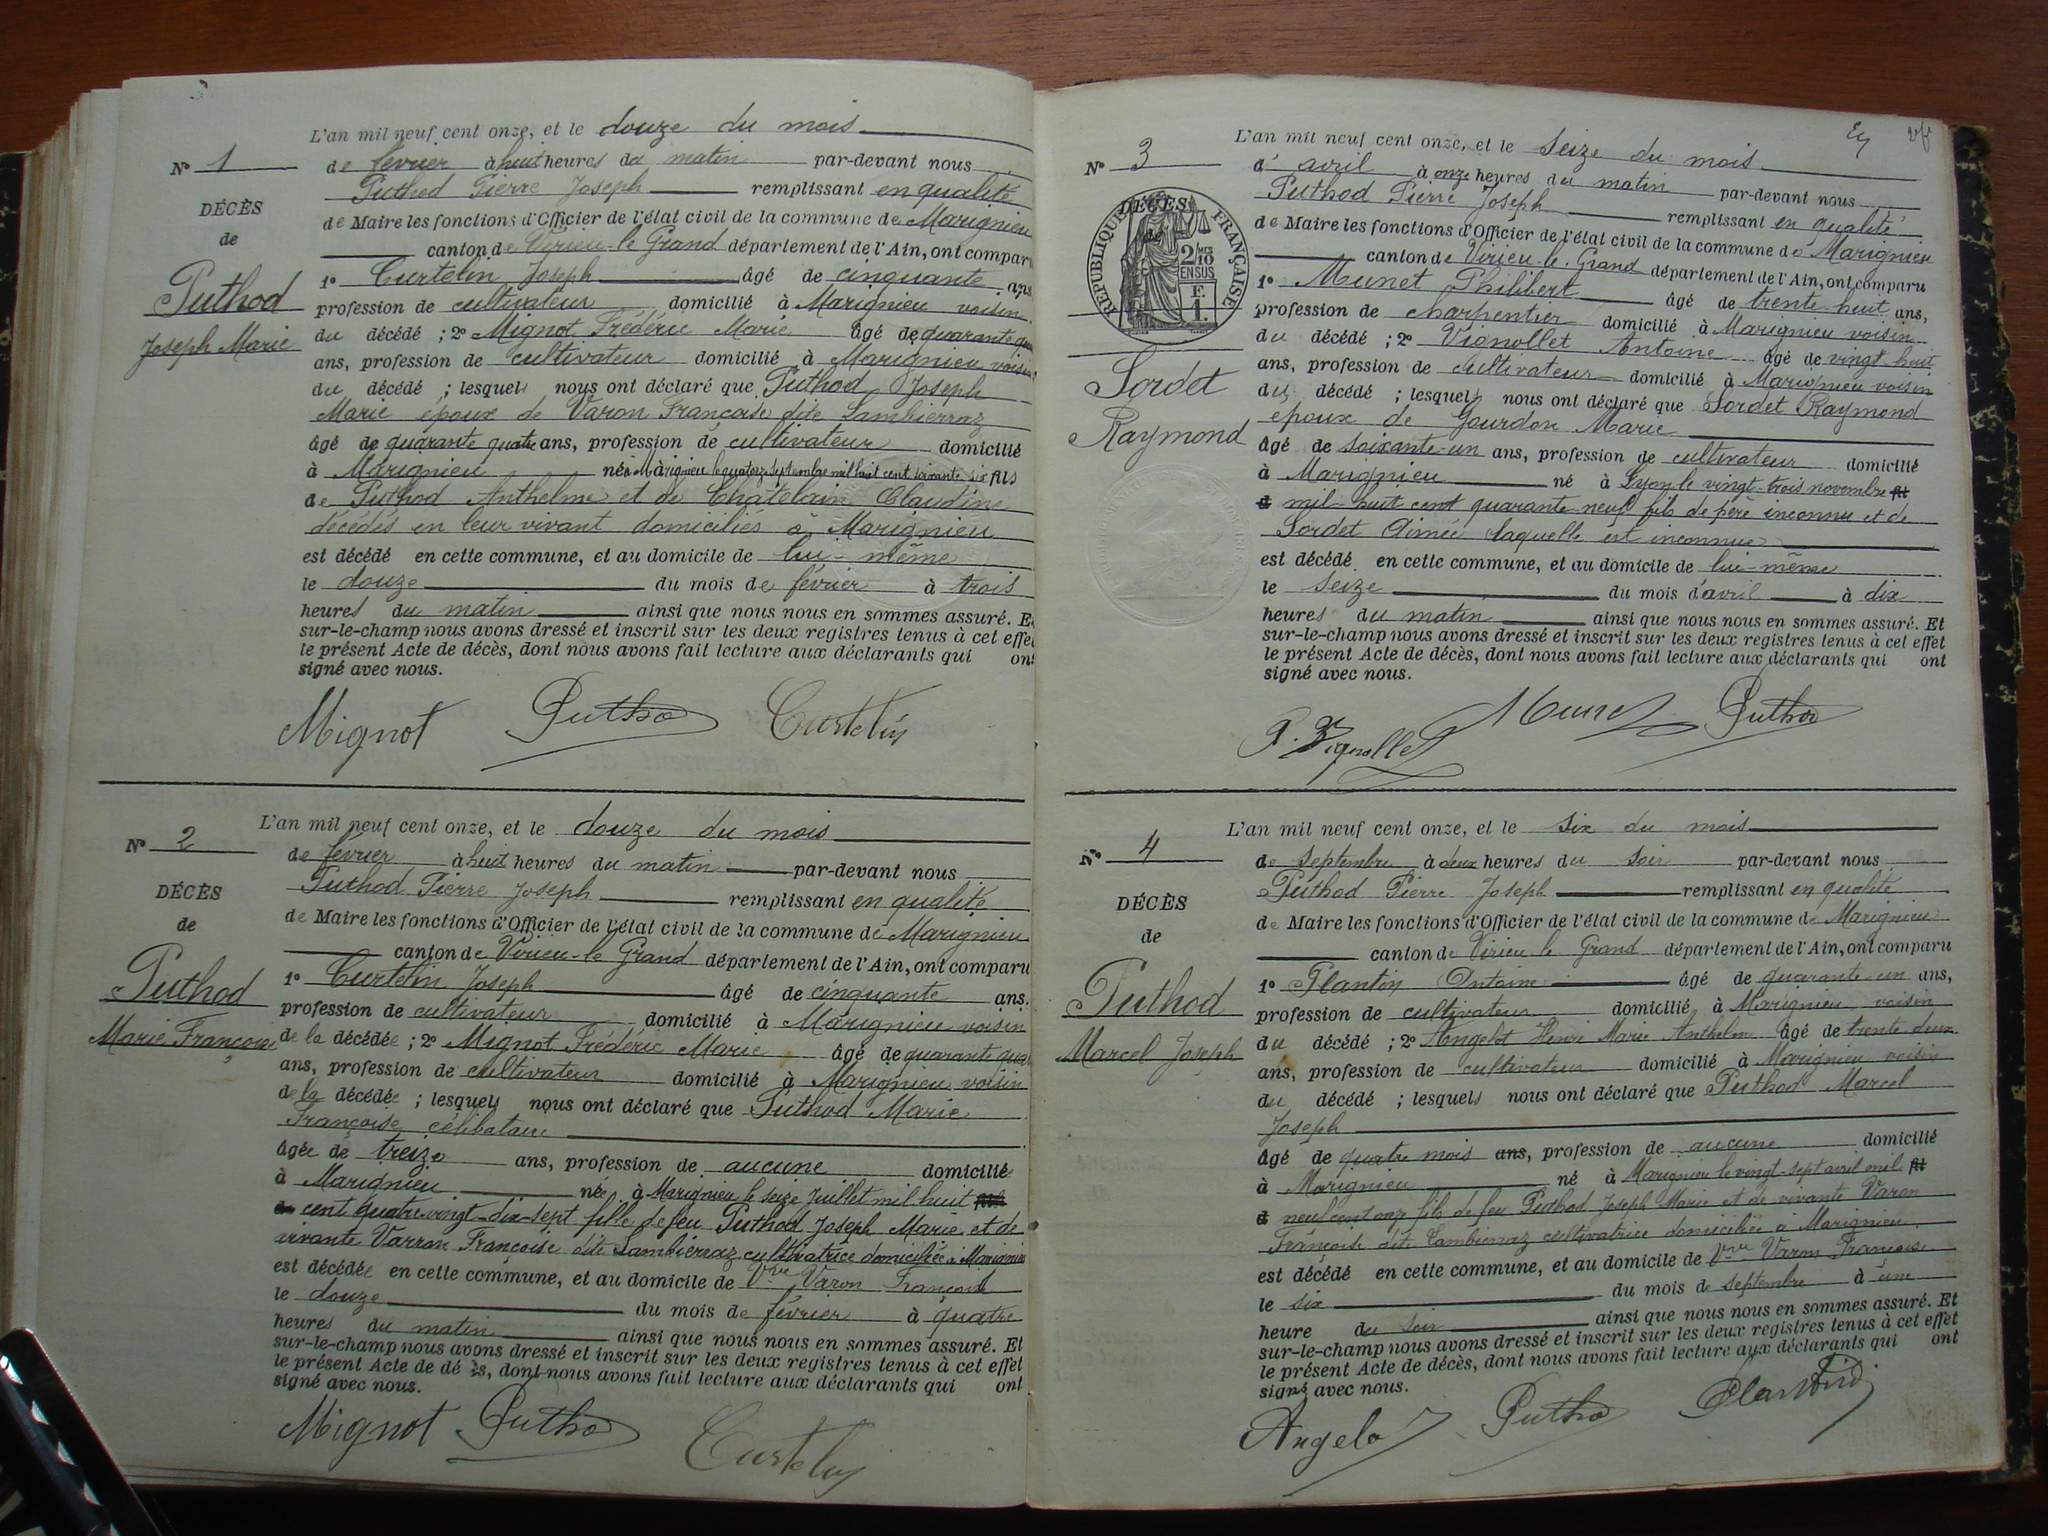 L'an mil neuf cent onze, et le douze du mois
N° 1
de février à huit heures du matin par-devant nous
Puthod Pierre Joseph remplissant en qualité
DÉCÈS
de Maire les fonctions d'Officier de l'état civil de la commune de Marignieu
de
canton de Virieu-le Grand département de l'Ain, ont comparu
Puthod
1° Curtelin Joseph âgé de cinquante ans
profession de cultivateur domicilié à Marignieu voisin
Joseph Marie
du décédé ; 2° Mignot Frédéric Marie âgé de quarante
ans, profession de cultivateur domicilié à Marignieu voisin
du décédé ; lesquels nous ont déclaré que Puthod Joseph
Marie époux de Varon Françoise dite Lambierraz
âgé de quarante quatre ans, profession de cultivateur domicilié
à Marignieu né à Marignieu le quatorze septembre mil huit cent soixante six fils
de Puthod Anthelme et de Châtelain Claudine
décédés en leur vivant domiciliés à Marignieu
est décédé en cette commune, et au domicile de lui-même
le douze du mois de février à trois
heures du matin ainsi que nous nous en sommes assuré. Et
sur-le-champ nous avons dressé et inscrit sur les deux registres tenus à cet effet
le présent Acte de décès, dont nous avons fait lecture aux déclarants qui ont
signé avec nous.
Mignot Puthod Curtelin
L'an mil neuf cent onze, et le douze du mois
N° 2
de février à huit heures du matin par-devant nous
Puthod Pierre Joseph remplissant en qualité
DÉCÈS
de Maire les fonctions d'Officier de l'état civil de la commune de Marignieu
de
canton de Virieu-le Grand département de l'Ain, ont comparu
Puthod
1° Curtelin Joseph âgé de cinquante ans.
profession de cultivateur domicilié à Marignieu voisin
Marie Françoise
de la décédée ; 2° Mignot Frédéric Marie âgé de quarante
ans, profession de cultivateur domicilié à Marignieu voisin
de la décédée ; lesquels nous ont déclaré que Puthod Marie
Françoise célibataire
âgée de treize ans, profession de aucune domicilié
à Marignieu née à Marignieu le seize juillet mil huit
cent quatre-vingt-dix-sept fille de feu Puthod Joseph Marie et de
vivante Varron Françoise dite Lambierraz cultivatrice domiciliée à Marignieu
est décédée en cette commune, et au domicile de Vve Varon Françoise
le douze du mois de février à quatre
heures du matin ainsi que nous nous en sommes assuré. Et
sur-le-champ nous avons dressé et inscrit sur les deux registres tenus à cet effet
le présent Acte de décès, dont nous avons fait lecture aux déclarants qui ont
signé avec nous.
Mignot Puthod Curtelin
L'an mil neuf cent onze, et le seize du mois
N° 3
d'avril à onze heures du matin par-devant nous
Puthod Pierre Joseph remplissant en qualité
DÉCÈS
RÉPUBLIQUE FRANÇAISE
2 MES 2/10 EN SUS
F. 1.
de Maire les fonctions d'Officier de l'état civil de la commune de Marignieu
canton de Virieu-le-Grand département de l'Ain, ont comparu
1° Munet Philibert âgé de trente-huit ans,
profession de charpentier domicilié à Marignieu voisin
du décédé ; 2° Vignollet Antoine âgé de vingt-huit
Sordet
ans, profession de cultivateur domicilié à Marignieu voisin
du décédé ; lesquels nous ont déclaré que Sordet Raymond
Raymond
époux de Gourdon Marie
âgé de soixante-un ans, profession de cultivateur domicilié
à Marignieu né à Lyon le vingt-trois novembre fils
mil-huit cent quarante-neuf fils de père inconnu et de
Sordet Aimée laquelle est inconnue
est décédé en cette commune, et au domicile de lui-même
le seize du mois d'avril à dix
heures du matin ainsi que nous nous en sommes assuré. Et
sur-le-champ nous avons dressé et inscrit sur les deux registres tenus à cet effet
le présent Acte de décès, dont nous avons fait lecture aux déclarants qui ont
signé avec nous.
Vignollet Munet Puthod
L'an mil neuf cent onze, et le six du mois
N° 4
de septembre à deux heures du soir par-devant nous
Puthod Pierre Joseph remplissant en qualité
DÉCÈS
de Maire les fonctions d'Officier de l'état civil de la commune de Marignieu
de
canton de Virieu le Grand département de l'Ain, ont comparu
Puthod
1° Plantin Antoine âgé de quarante-un ans,
profession de cultivateur domicilié à Marignieu voisin
Marcel Joseph
du décédé ; 2° Angelot Henri Marie Anthelme âgé de trente deux
ans, profession de cultivateur domicilié à Marignieu voisin
du décédé ; lesquels nous ont déclaré que Puthod Marcel
Joseph
âgé de quatre mois ans, profession de aucune domicilié
à Marignieu né à Marignieu le vingt-sept avril mil fils
neuf cent onze fils de feu Puthod Joseph Marie et de vivante Varon
Françoise dite Lambierraz cultivatrice domiciliée à Marignieu
est décédé en cette commune, et au domicile de Vve Varon Françoise
le six du mois de septembre à une
heure du soir ainsi que nous nous en sommes assuré. Et
sur-le-champ nous avons dressé et inscrit sur les deux registres tenus à cet effet
le présent Acte de décès, dont nous avons fait lecture aux déclarants qui ont
signé avec nous.
Angelot Puthod Plantin